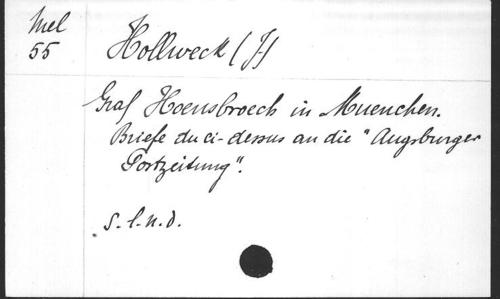 Mel
55
Hollweck (J)
Graf Hoensbroech in Muenchen.
Briefe du ci-dessus an die "Augsburger
Postzeitung".
s.l.n.d.